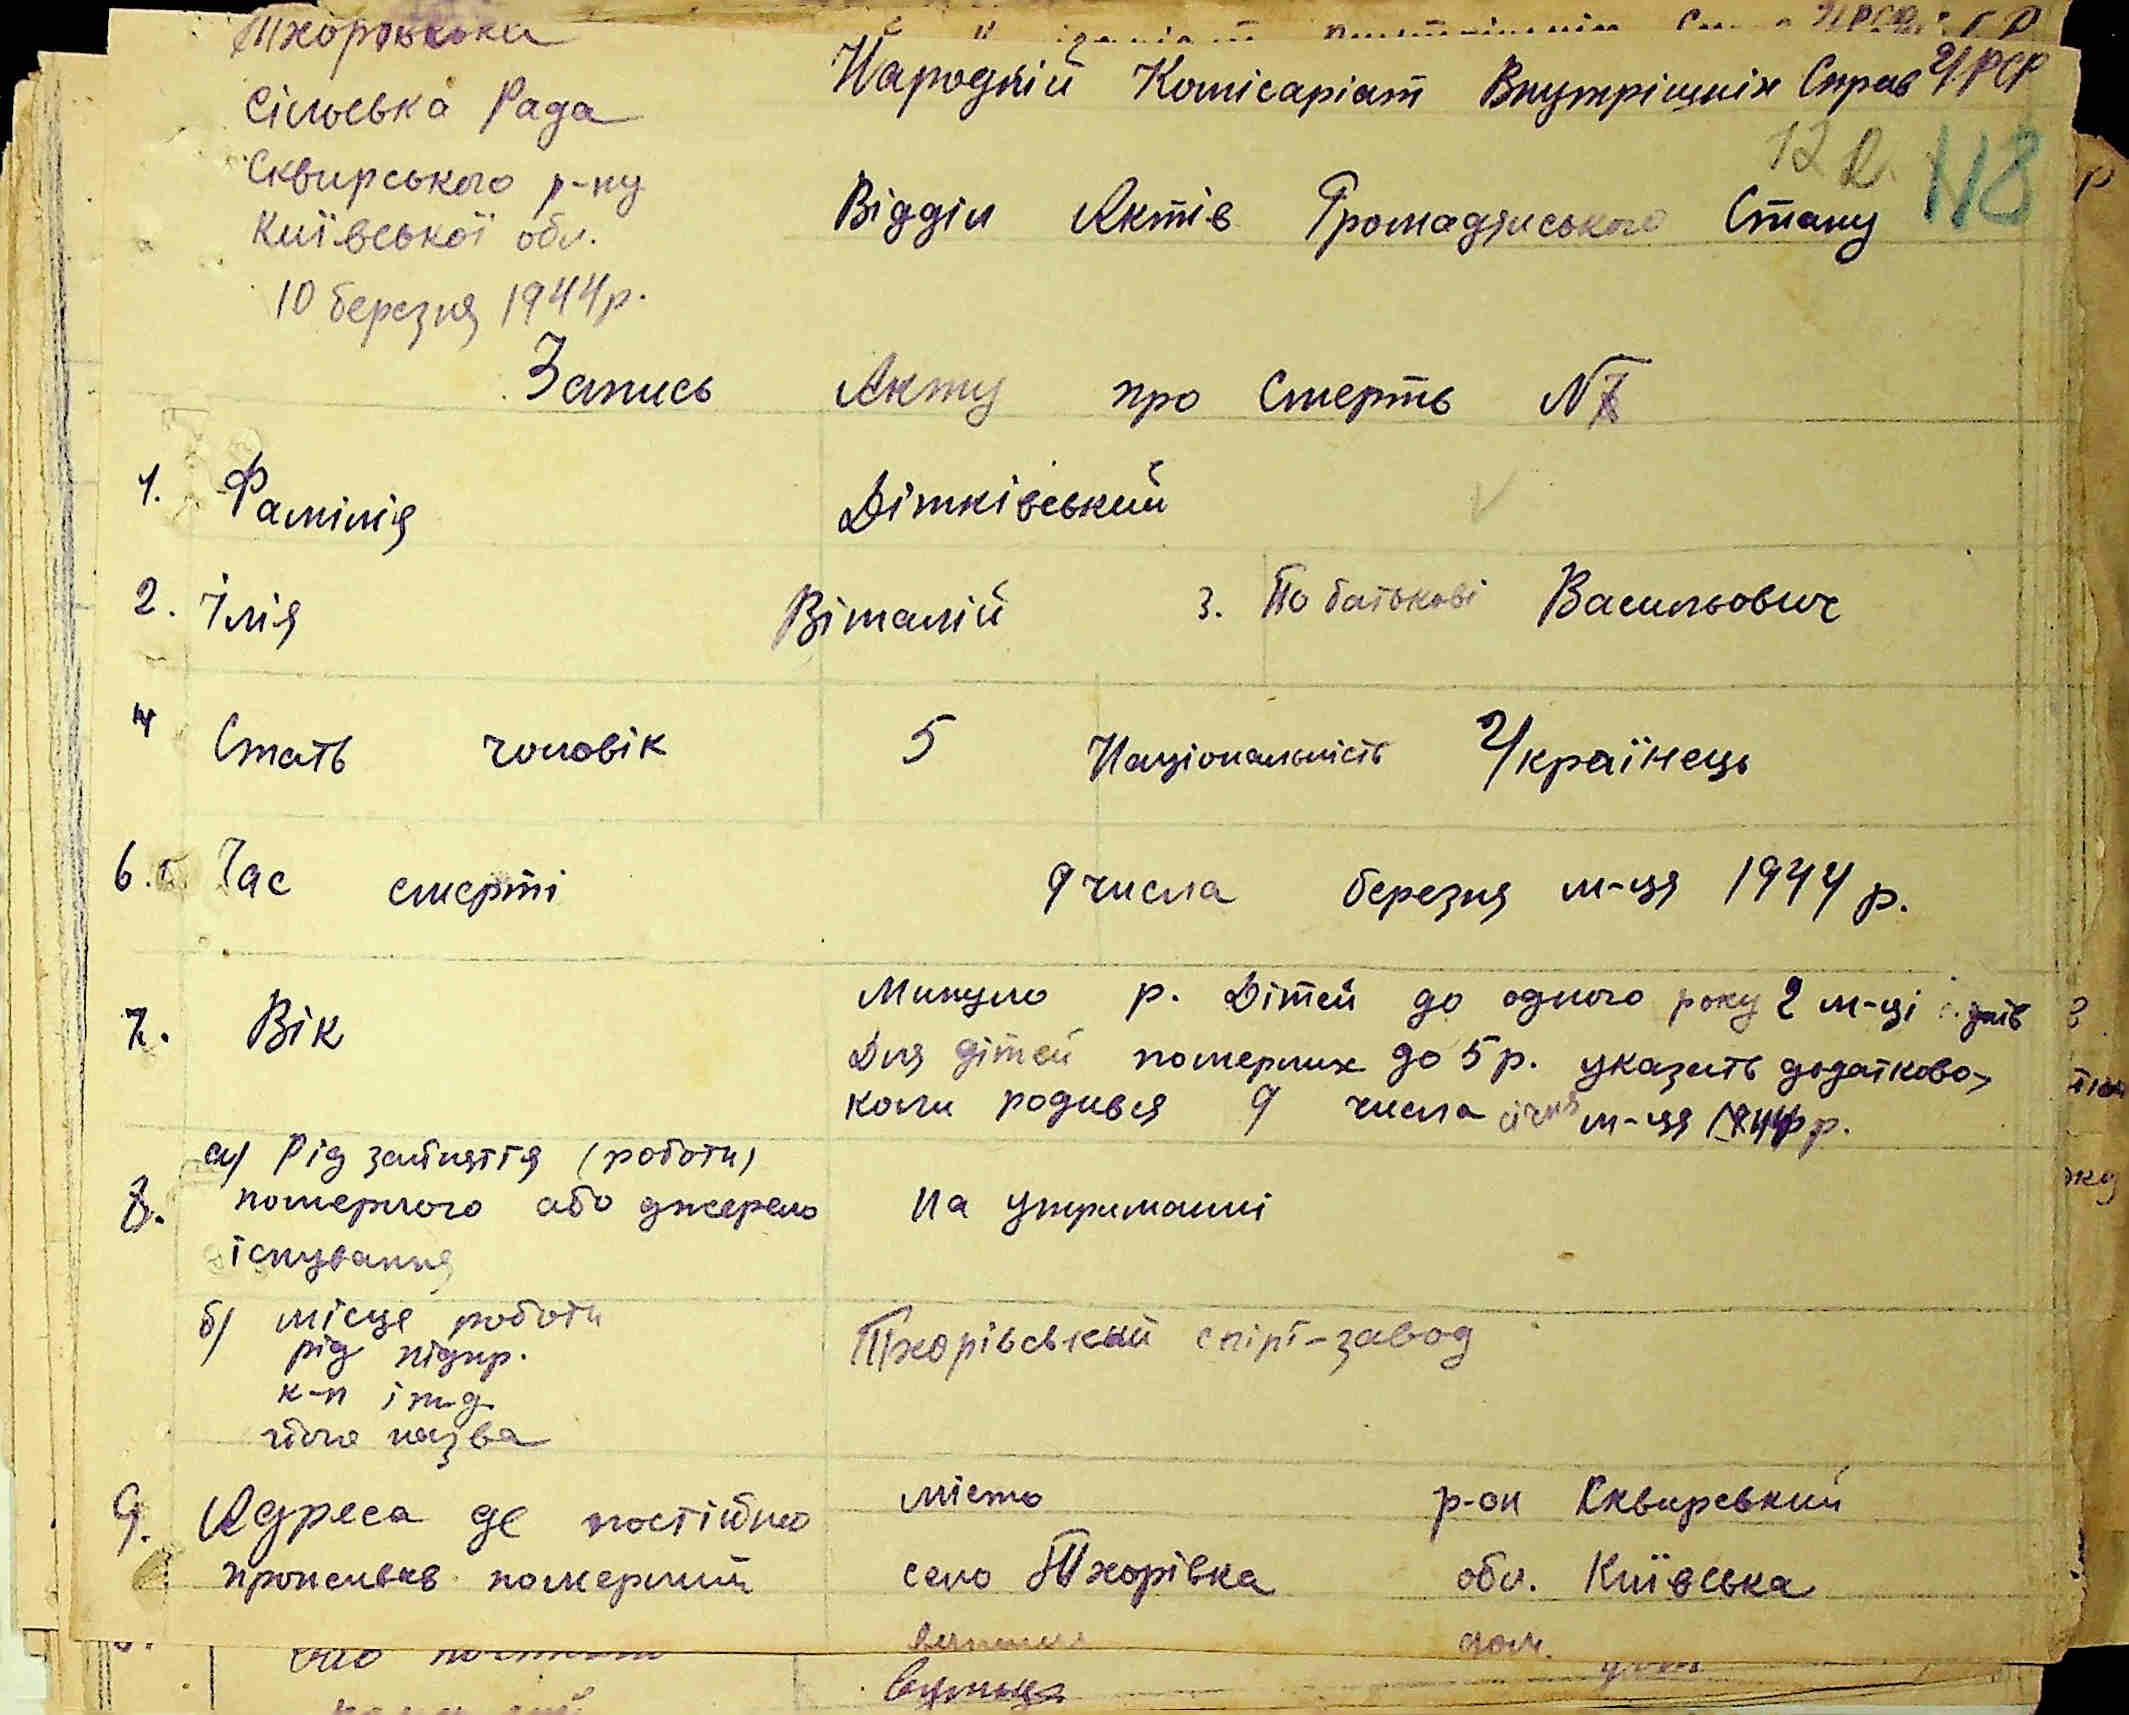 Тхорівська
Сільська Рада
Сквирського р-ну
Київської обл.
10 березня 1944 р.
Народній Комісаріат Внутрішніх Справ УРСР
12 N8
Відділ Актів Громадянського Стану
Запись Акту про Смерть N7
1. Фамілія Дітківський
2. Імія Віталій 3. По батькові Васильович
4 Стать чоловік 5 Національність Українець
6. Час смерті 9 числа березня м-ця 1944 р.
7. Вік Минуло р. Дітей до одного року 2 м-ці днів
Для дітей померлих до 5 р. указать додатково,
коли родився 9 числа січня м-ця 1944 р.
8. а) Рід заняття (роботи)
померлого або джерело на утриманні
існування
б) місце роботи Тхорівський спірт-завод
рід підпр.
к-п і т.д.
його назва
9. Адреса де постійно місто р-он Сквирський
проживав померлий село Тхорівка обл. Київська
дом.
вулиця